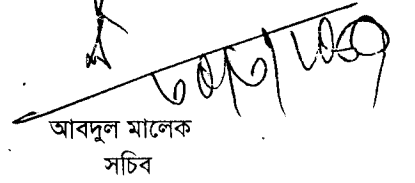 আবদুল মালেক
সচিব